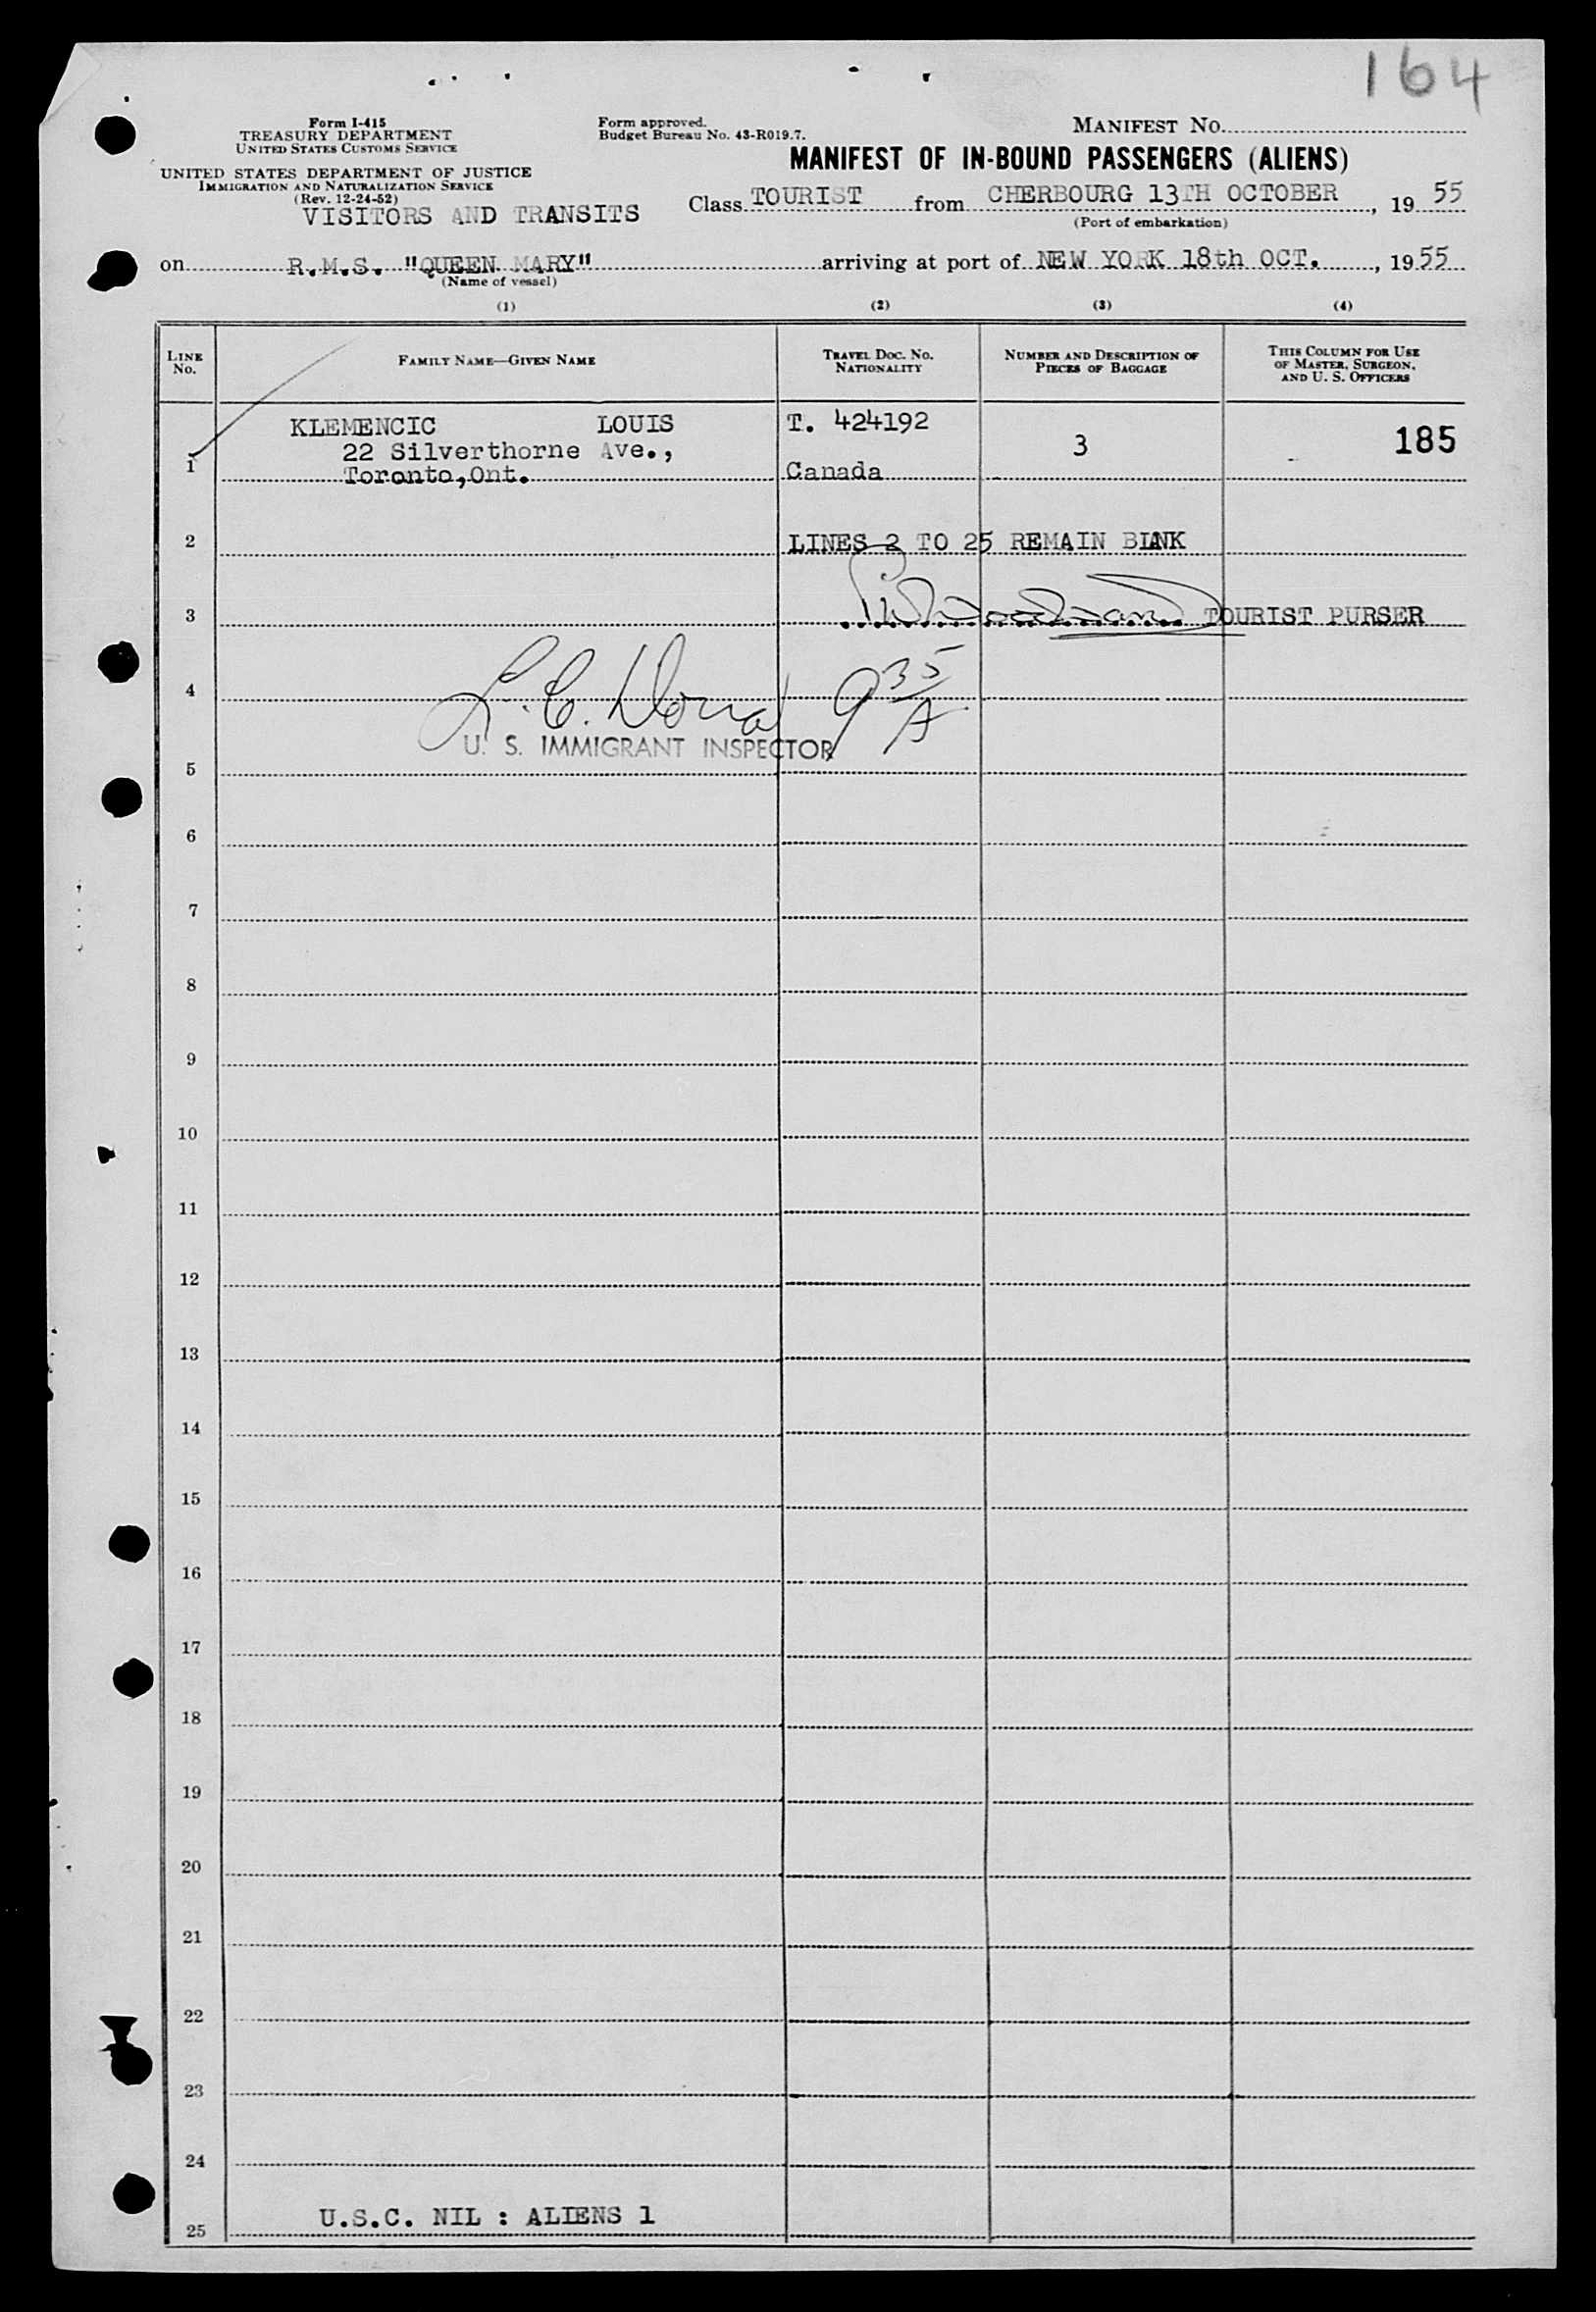 164
Form I-415
TREASURY DEPARTMENT
UNITED STATES CUSTOMS SERVICE
UNITED STATES DEPARTMENT OF JUSTICE
IMMIGRATION AND NATURALIZATION SERVICE
(Rev. 12-24-52)
VISITORS AND TRANSITS
Form approved.
Budget Bureau No. 43-R019.7.
MANIFEST NO.
MANIFEST OF IN-BOUND PASSENGERS (ALIENS)
Class TOURIST from CHERBOURG 13TH OCTOBER, 19 55
(Port of embarkation)
on R.M.S. "QUEEN MARY" arriving at port of NEW YORK 18th OCT., 19 55
(Name of vessel)
(1) (2) (3) (4)
LINE NO.
FAMILY NAME—GIVEN NAME
TRAVEL DOC. NO.
NATIONALITY
NUMBER AND DESCRIPTION OF
PIECES OF BAGGAGE
THIS COLUMN FOR USE
OF MASTER, SURGEON,
AND U. S. OFFICERS
1 KLEMENCIC LOUIS T. 424192 3 185
22 Silverthorne Ave.,
Toronto,Ont. Canada
2 LINES 2 TO 25 REMAIN BLANK
3 TOURIST PURSER
4 L. C. 9 35/A
U. S. IMMIGRANT INSPECTOR
5
6
7
8
9
10
11
12
13
14
15
16
17
18
19
20
21
22
23
24
25 U.S.C. NIL : ALIENS 1